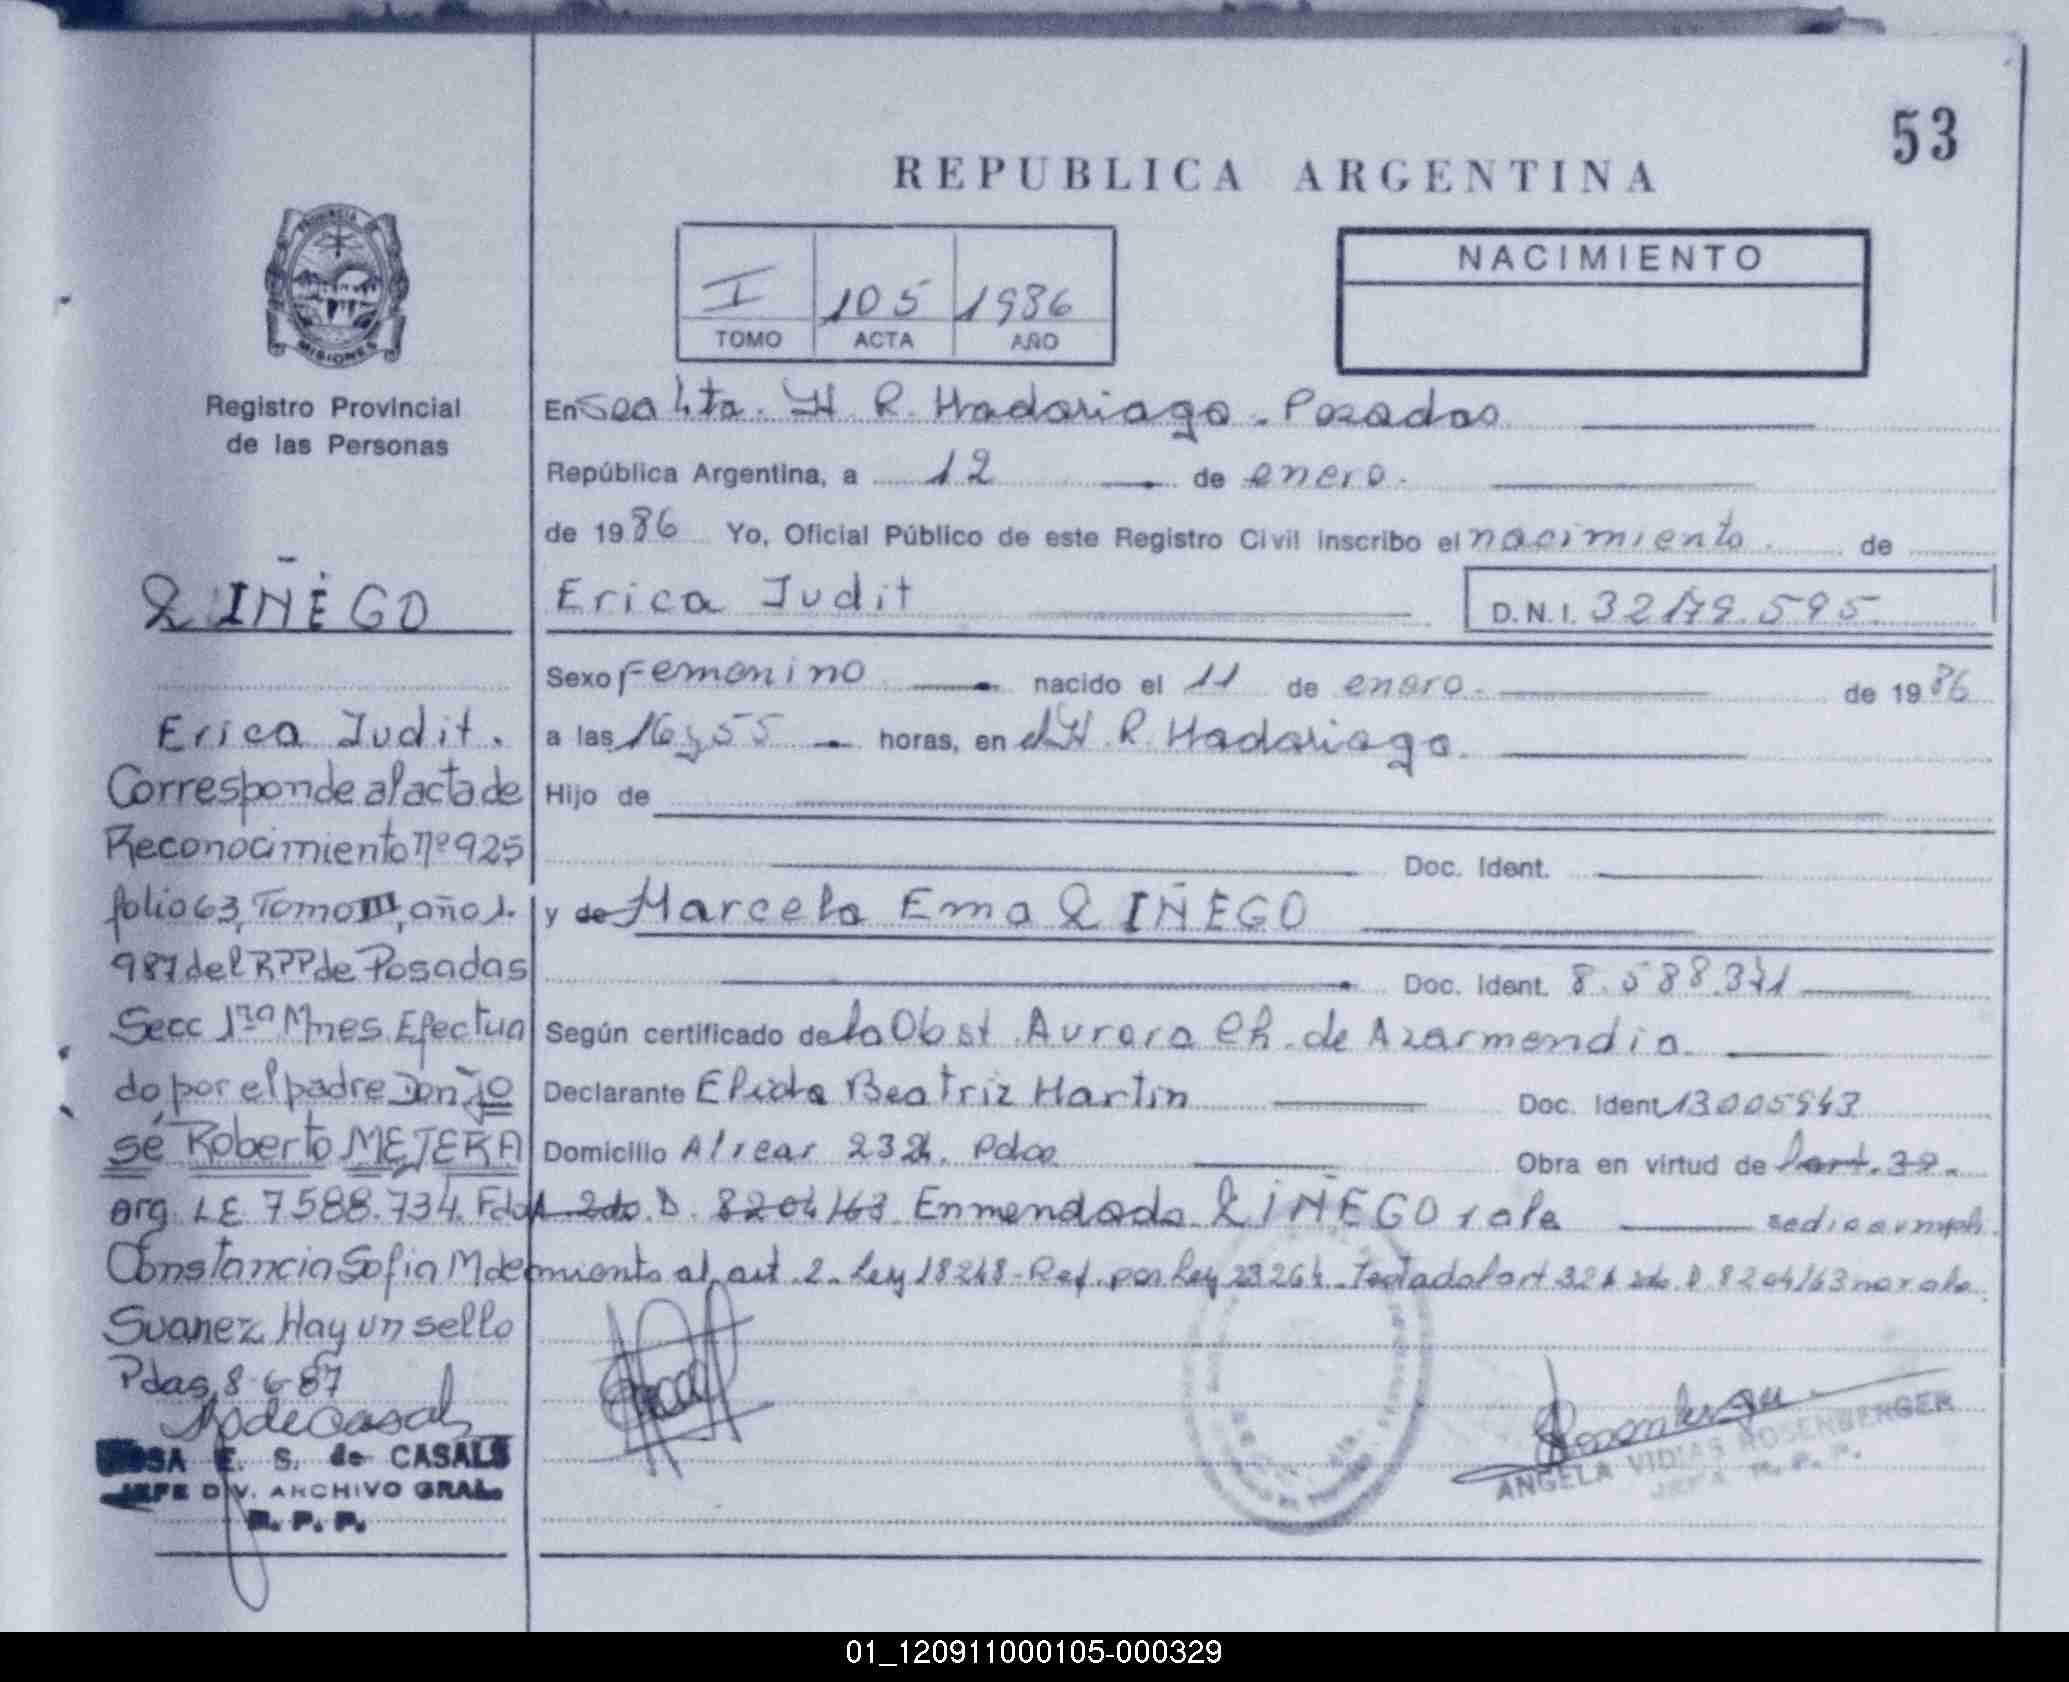 53
REPUBLICA ARGENTINA
PROVINCIA DE
MISIONES
Registro Provincial
de las Personas
I 105 1986
TOMO ACTA AÑO
NACIMIENTO
En H. R. Madariaga. Posadas
República Argentina, a 12 de enero.
de 1986 Yo, Oficial Público de este Registro Civil inscribo el nacimiento. de
Erica Judit D.N.I. 32179.595
Sexo Femenino nacido el 11 de enero. de 1986
a las 16 y 55 horas, en el H. R. Madariaga.
Hijo de
Doc. Ident.
y de Marcela Ema LIÑEGO
Doc. Ident. 8.588.371
Según certificado de la Obst. Aurora Ch. de Azarmendia
Declarante Elida Beatriz Martin Doc. Ident 13005943
Domicilio Alvear 232 Pdas Obra en virtud de l'art. 32.
A. 2do. D. 8204/63. Enmendado LIÑEGO vale sedio cumpli
miento al art. 2. Ley 18248 - Ref. por Ley 23264. Testado l'art 32 A 2do. D. 8204/63 no vale.
LIÑEGO
Erica Judit.
Corresponde al acta de
Reconocimiento nº 925
folio 63, Tomo III, año 1.
987 del RPP de Posadas
Secc 1ra Mnes. Efectua
do por el padre Don Jo
sé Roberto MEJERA
arg. LE 7588.734. Fdo
Constancia Sofia M de
Suarez. Hay un sello
Pdas, 8-6-87
ROSA E. S. de CASALS
JEFE DIV. ARCHIVO GRAL.
R. P. P.
ANGELA VIDIAS ROSENBERGER
JEFA R. P. P.
01_120911000105-000329